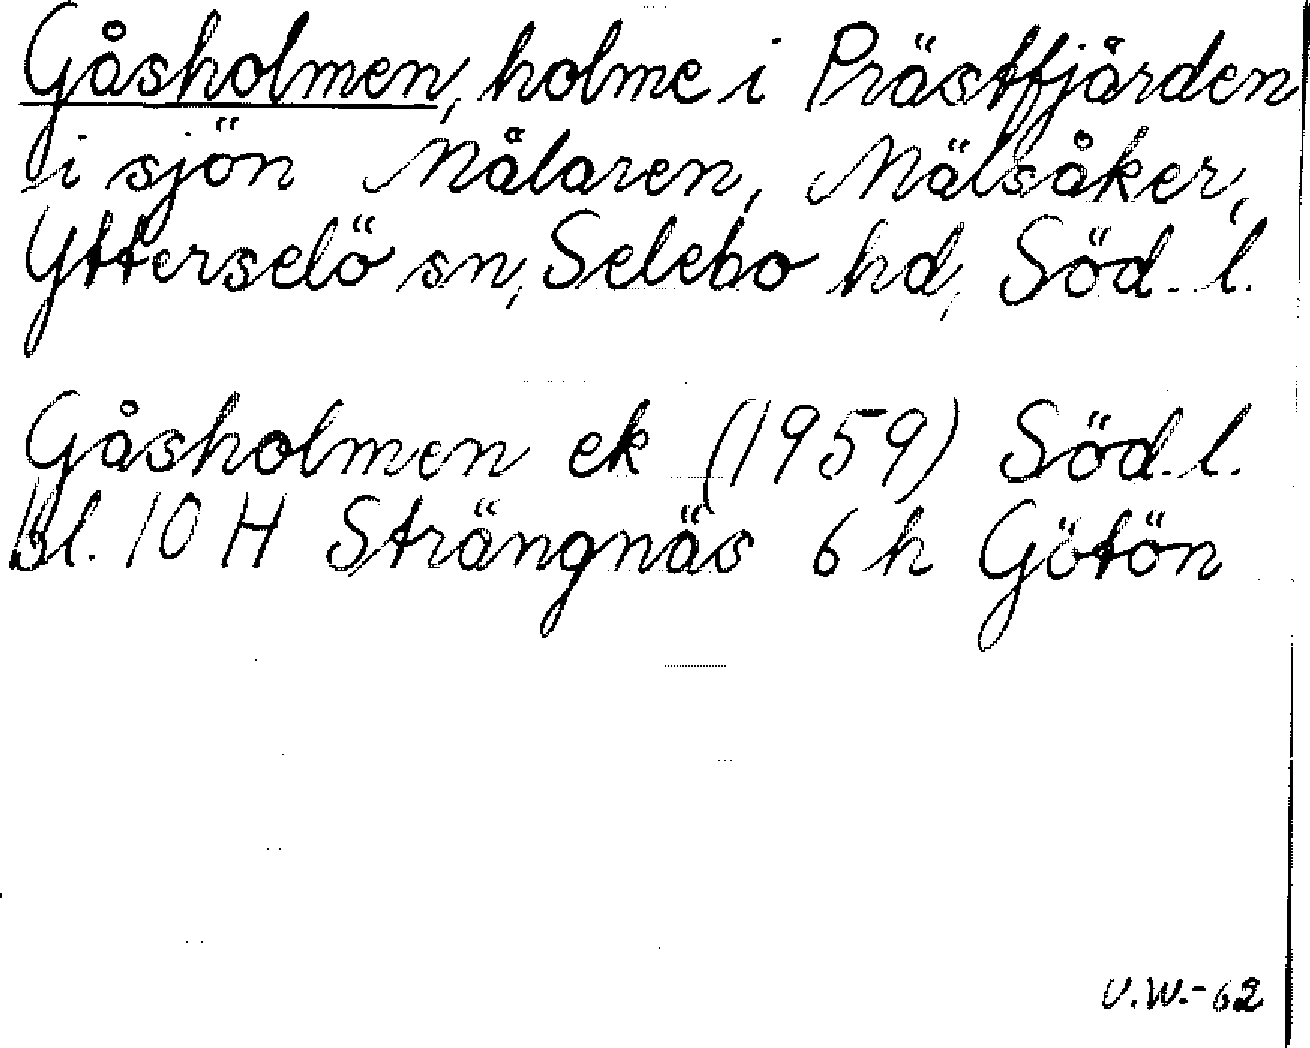 Gåsholmen, holme i Prästfjärden
i sjön Mälaren, Mälsåker,
Ytterselö sn, Selebo hd, Söd. l.
Gåsholmen ek (1959) Söd. l.
Bl. 10 H Strängnäs 6 h Götön
U.W.-62